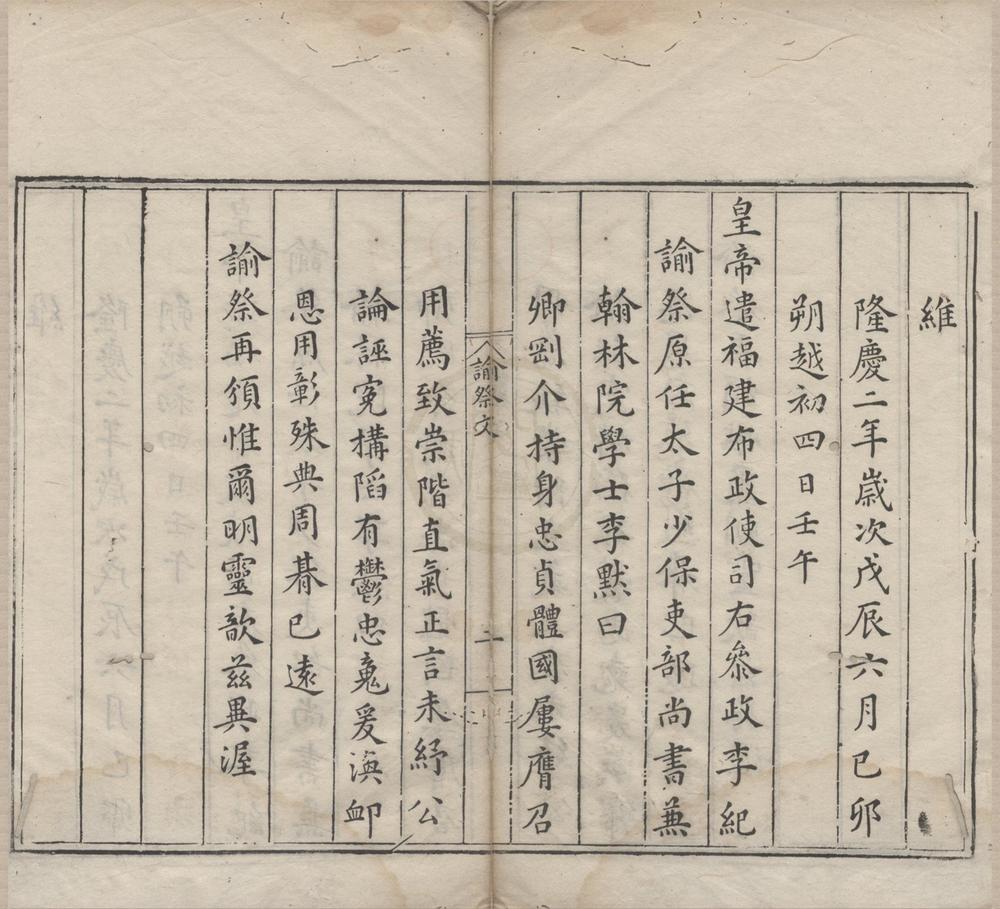 維
隆慶二年歲次戊辰六月己卯
朔越初四日壬午
皇帝遣福建布政使司右叅政李紀
諭祭原任太子少保吏部尚書兼
翰林院學士李默曰
卿剛介持身忠貞體國屢膺召
諭祭文
二
用薦致崇階直氣正言未紓公
論誣寃搆陷有鬱忠寃爰渙卹
恩用彰殊典周朞已遠
諭祭再頒惟爾明靈歆茲異渥